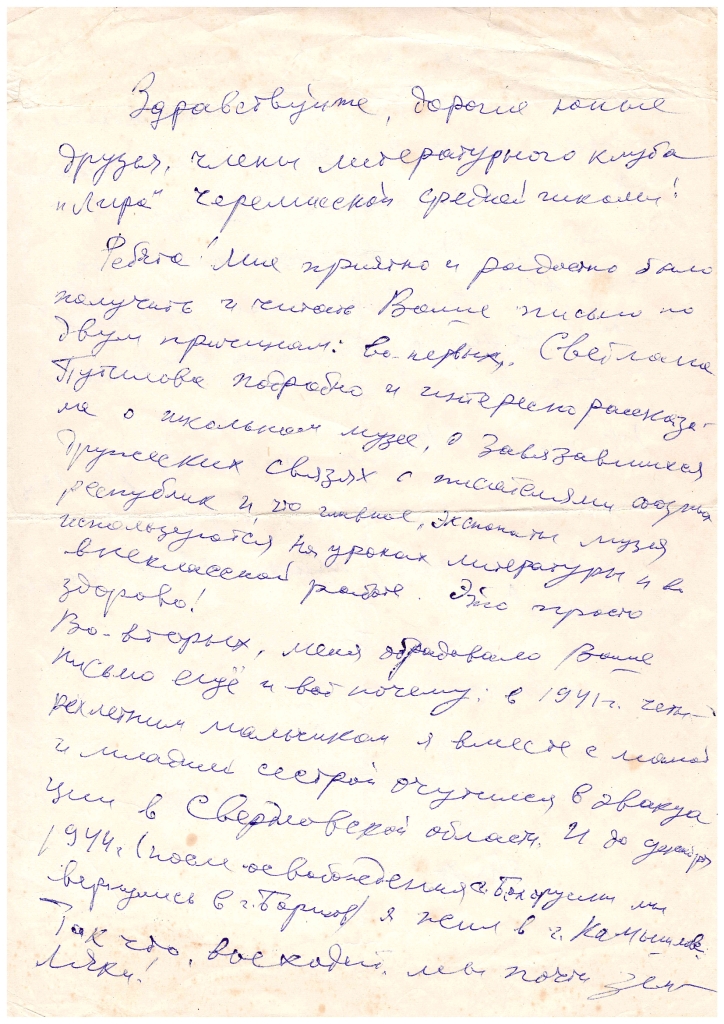 Здравствуйте, дорогие юные
друзья, члены литературного клуба
"Лира" Черемисской средней школы!
Ребята! Мне приятно и радостно было
получить и читать Ваше письмо по
двум причинам: во-первых, Светлана
Путилова подробно и интересно рассказа-
ла о школьном музее, о завязавшихся
дружеских связях с писателями союзных
республик и, что главное, экспонаты музея
используются на уроках литературы и во
внеклассной работе. Это просто
здорово!
Во-вторых, меня обрадовало Ваше
письмо ещё и вот почему: в 1941 г. четы-
рёхлетним мальчиком я вместе с мамой
и младшей сестрой очутился в эвакуа-
ции в Свердловской области. И до декабря
1944 г. (после освобождения Белоруссии мы
вернулись в г. Борисов) я жил в г. Камышлове.
Так что, выходит, мы почти зем-
ляки!